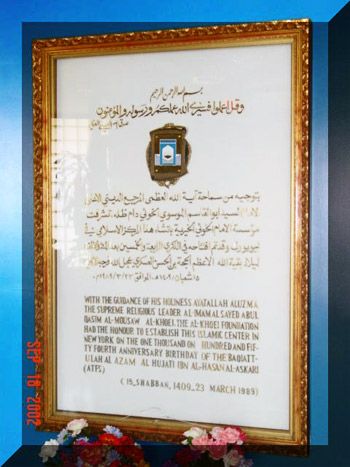 بسم الله الرحمن الرحيم
وقل اعملوا فسيرى الله عملكم ورسوله والمؤمنون
صدق الله العلي العظيم
بتوجيه من سماحة آية الله العظمى المرجع الديني الاعلى
الامام السيد ابو القاسم الموسوي الخوئي دام ظله تشرفت
مؤسسة الامام الخوئي الخيرية بإنشاء هذا المركز الاسلامي في
نيويورك وقد تم افتتاحه في الذكرى الرابعة والخمسين بعد المئة والالف
لميلاد بقية الله الاعظم الحجة بن الحسن العسكري عجل الله فرجه
١٥ شعبان ١٤٠٩هـ الموافق ١٩٨٩/٣/٢٣م
WITH THE GUIDANCE OF HIS HOLINESS AYATALLAH ALUZMA
THE SUPREME RELIGIOUS LEADER AL-IMAM AL SAYED ABUL
QASIM AL-MOUSAWI AL-KHOEI. THE AL-KHOEI FOUNDATION
HAD THE HONOUR TO ESTABLISH THIS ISLAMIC CENTER IN
NEW YORK ON THE ONE THOUSAND ON HUNDRED AND FIF-
TY FOURTH ANNIVERSARY BIRTHDAY OF THE BAQIATT-
ULLAH AL AZAM AL HUJATI IBN AL-HASAN AL-ASKARI
(ATFS)
( 15, SHABBAN, 1409. 23 MARCH 1989)
SEP 18 2002